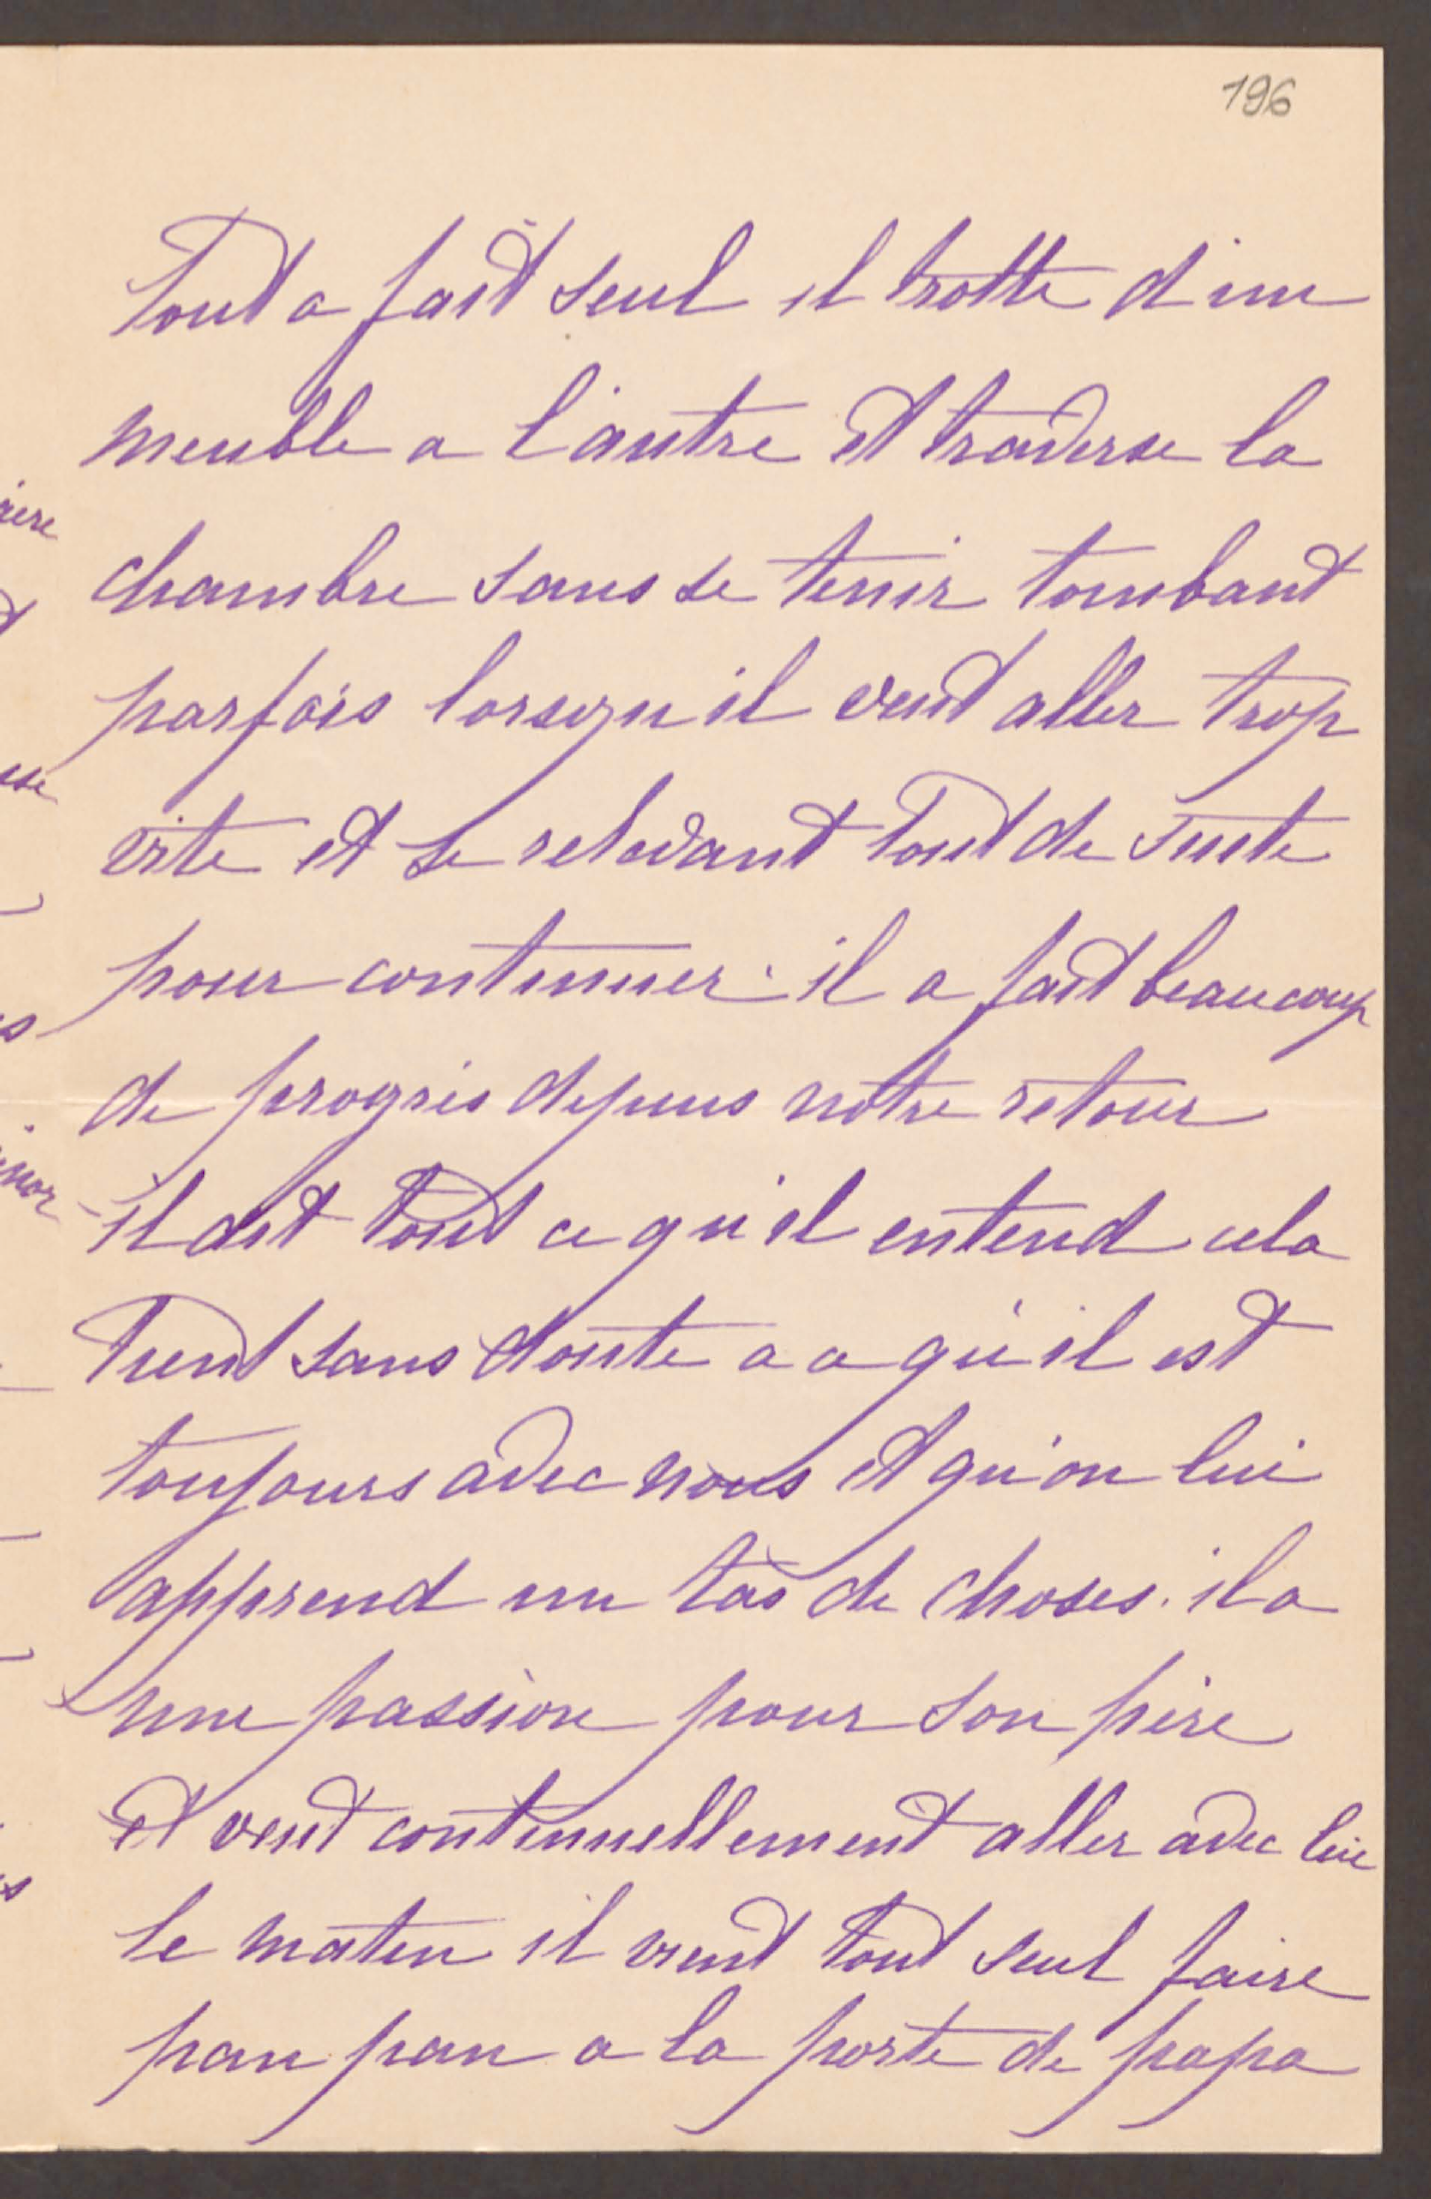 196
Tout a fait seul il trotte d'un
meuble a l'autre et traverse la
chambre sans se tenir tombant
parfois lorsqu'il veut aller trop
vite et se relevant tout de suite
pour continuer. il a fait beaucoup
de progrès depuis notre retour
il dit tout ce qu'il entend cela
tient sans doute a ce qu'il est
toujours avec nous et qu'on lui
apprend un tas de choses. il a
une passion pour son père
et veut continuellement aller avec lui
le matin il vient tout seul faire
pan pan a la porte de papa